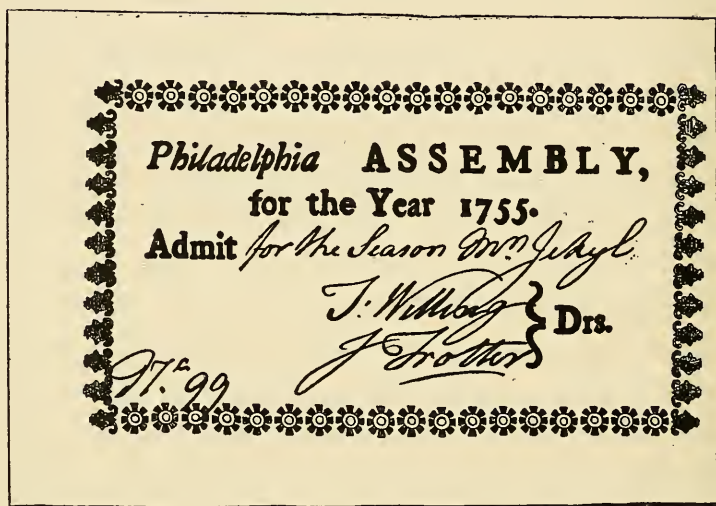 Philadelphia ASSEMBLY,
for the Year 1755.
Admit for the Season Mrs Jekyl.
T: Willing } Drs.
J Trotter
No. 99